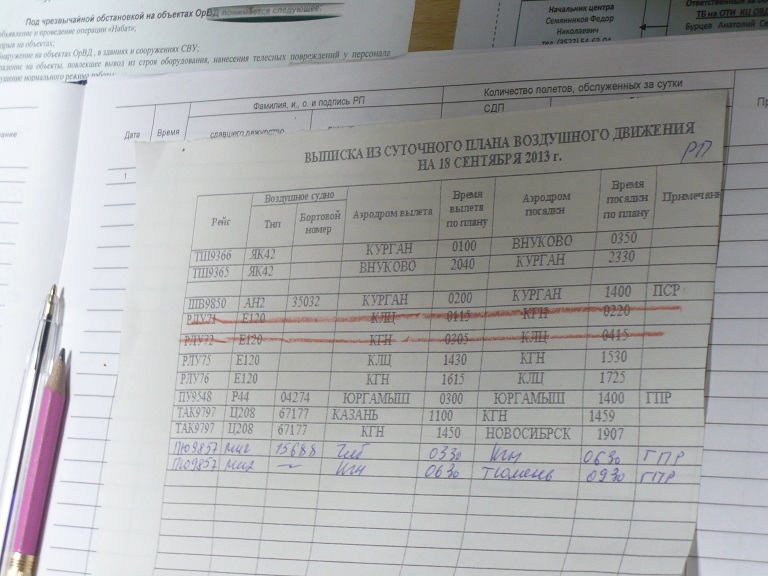 Под чрезвычайной обстановкой на объектах ОрВД понимается следующее:
объявление и проведение операции «Набат»;
взрыв на объектах;
обнаружение на объектах ОрВД, в зданиях и сооружениях СВУ;
нападение на объекты, повлекшее вывод из строя оборудования, нанесения телесных повреждений у персонала
Начальник центра
Семянников Федор
Николаевич
ТБ на ОТИ КЦ ОВД
Бурцев Анатолий
Фамилия, и., о. и подпись РП
Количество полетов, обслуженных за сутки
Дата Время сдавшего дежурство СДП
1
ВЫПИСКА ИЗ СУТОЧНОГО ПЛАНА ВОЗДУШНОГО ДВИЖЕНИЯ
НА 18 СЕНТЯБРЯ 2013 г.
РП
Рейс Воздушное судно Тип Бортовой номер Аэродром вылета Время вылета по плану Аэродром посадки Время посадки по плану Примечани
ТШ9366 ЯК42 КУРГАН 0100 ВНУКОВО 0350
ТШ9365 ЯК42 ВНУКОВО 2040 КУРГАН 2330
ШВ9850 АН2 35032 КУРГАН 0200 КУРГАН 1400 ПСР
РЛУ71 Е120 КЛЦ 0115 КГН 0220
РЛУ72 Е120 КГН 0305 КЛЦ 0415
РЛУ75 Е120 КЛЦ 1430 КГН 1530
РЛУ76 Е120 КГН 1615 КЛЦ 1725
ПУ9548 Р44 04274 ЮРГАМЫШ 0300 ЮРГАМЫШ 1400 ГПР
ТАК9797 Ц208 67177 КАЗАНЬ 1100 КГН 1459
ТАК9797 Ц208 67177 КГН 1450 НОВОСИБРСК 1907
ПЮ9857 Ми2 15688 Члб 0330 Кгн 0630 ГПР
ПЮ9857 Ми2 〜 Кгн 0630 Тюмень 0930 ГПР